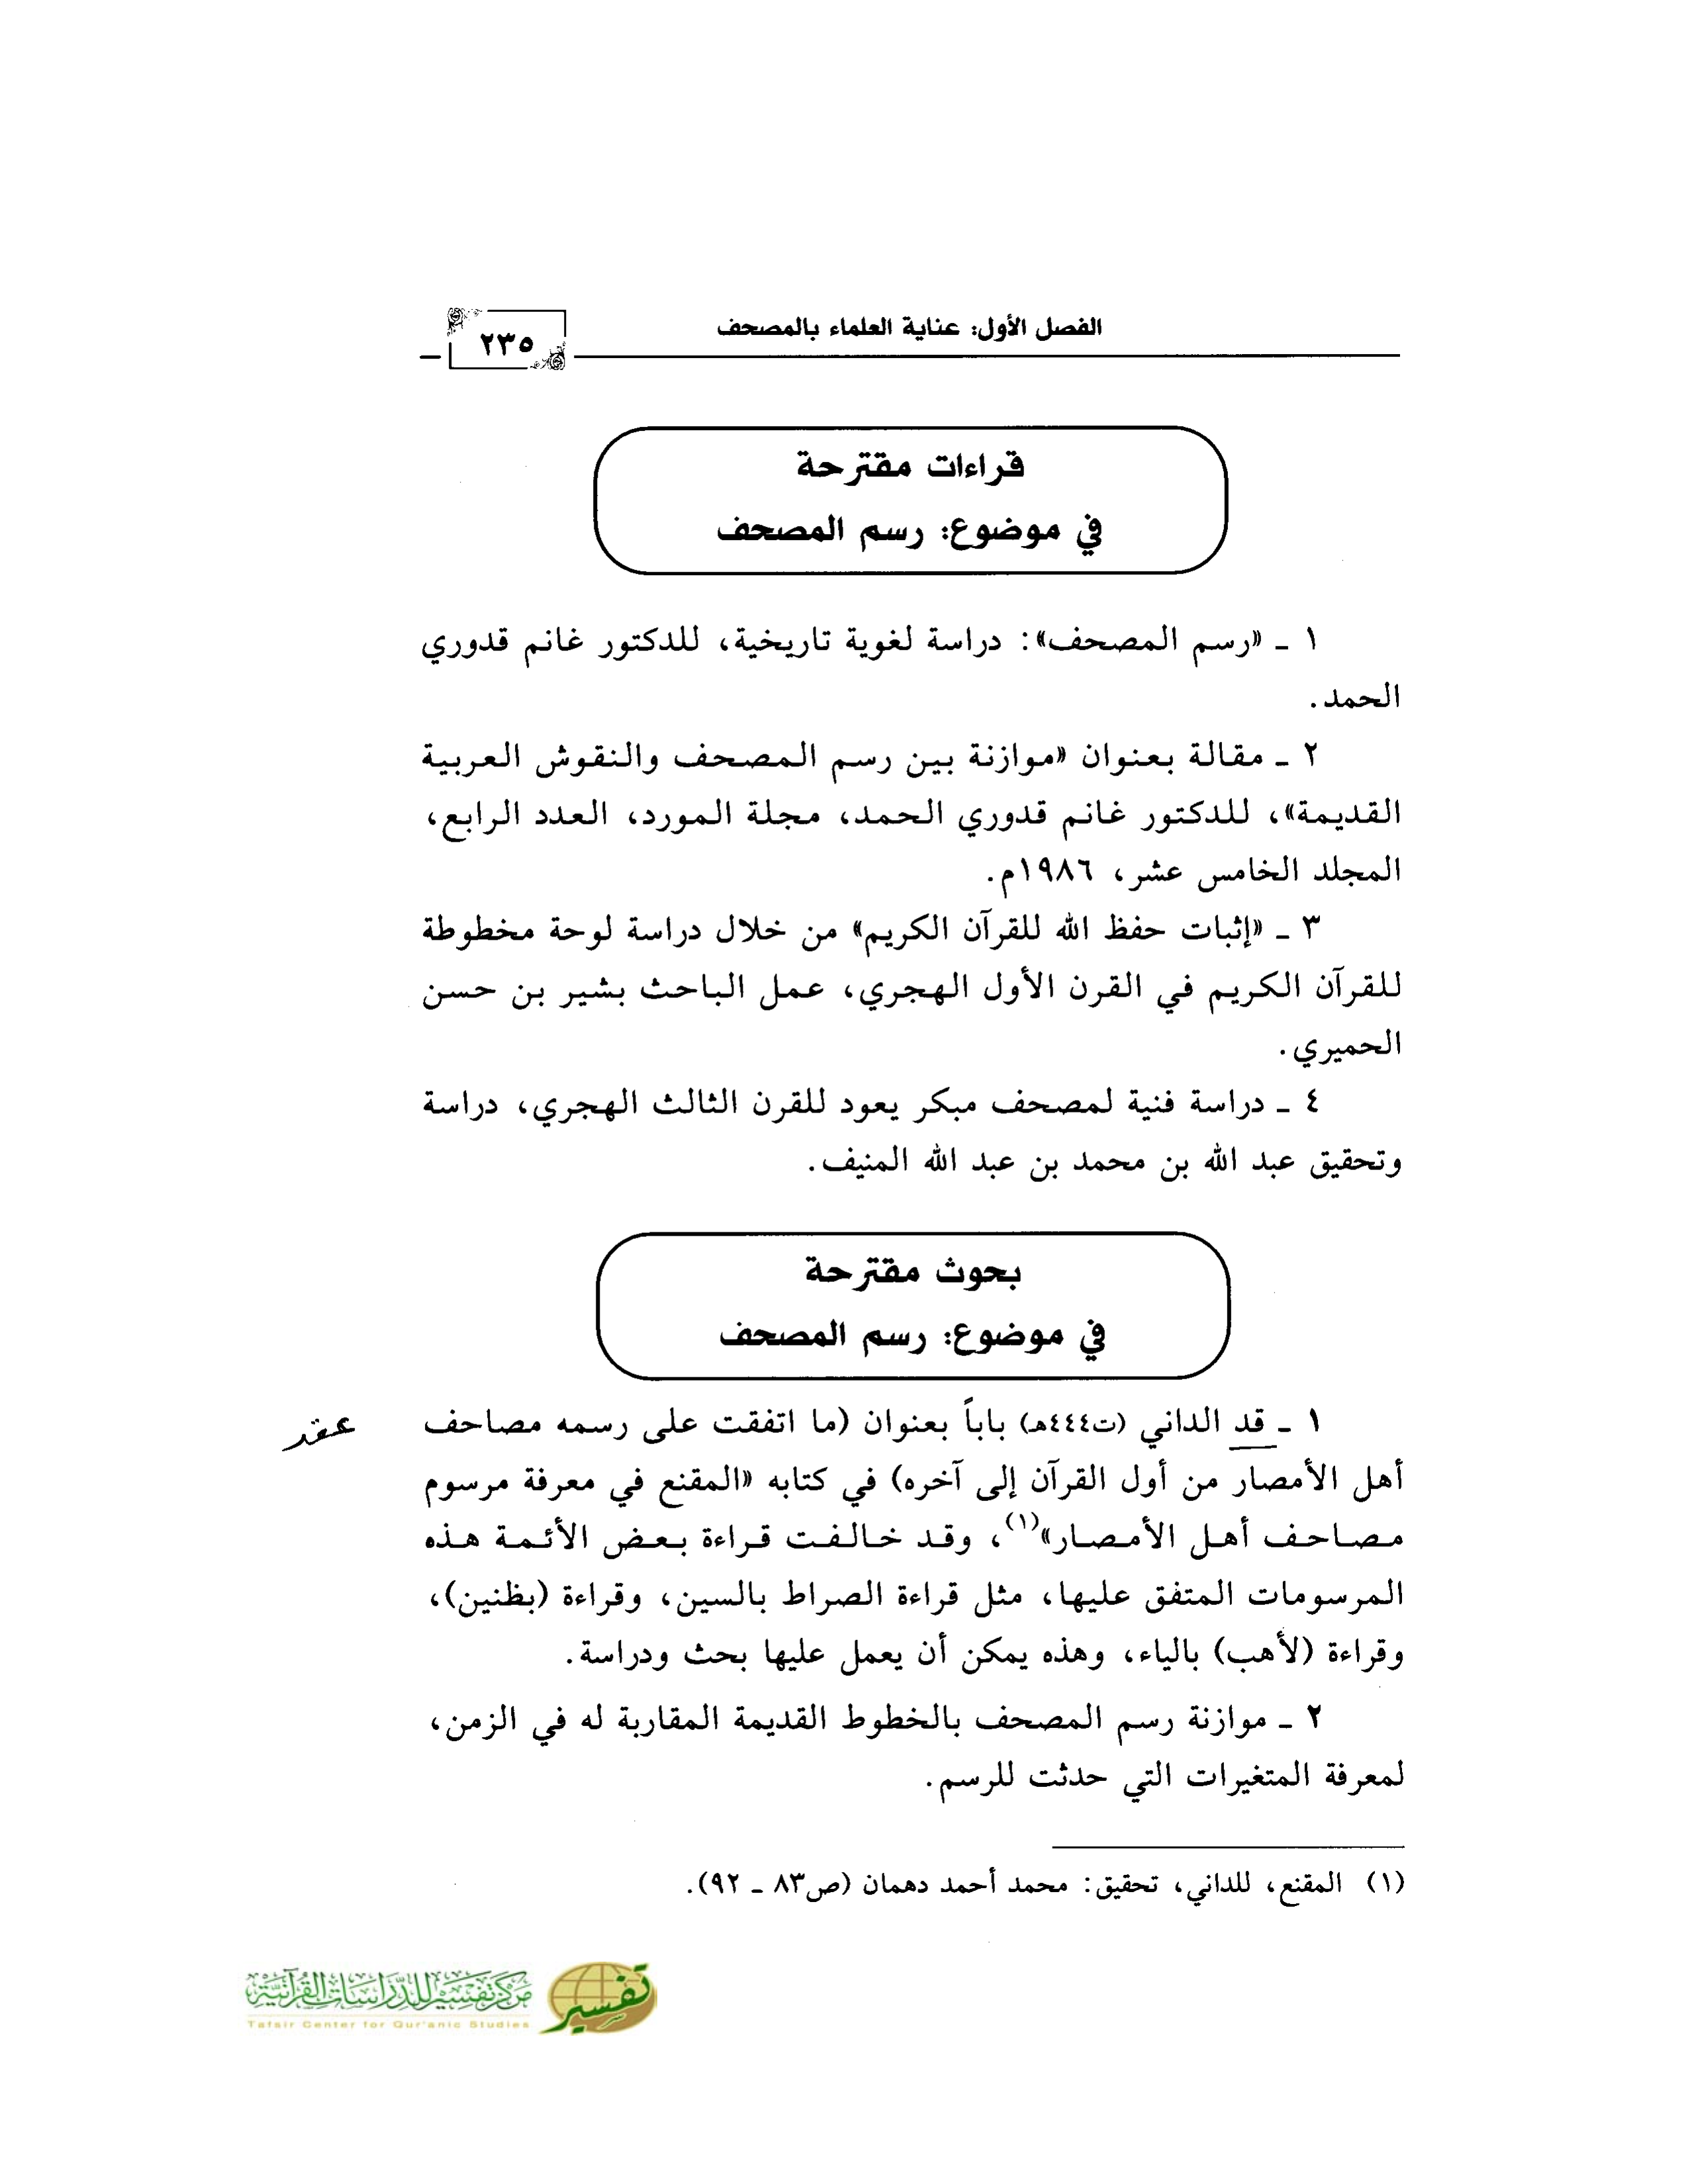 الفصل الأول: عناية العلماء بالمصحف
٢٣٥
قراءات مقترحة
في موضوع: رسم المصحف
١ ـ «رسم المصحف»: دراسة لغوية تاريخية، للدكتور غانم قدوري
الحمد.
٢ ـ مقالة بعنوان «موازنة بين رسم المصحف والنقوش العربية
القديمة»، للدكتور غانم قدوري الحمد، مجلة المورد، العدد الرابع،
المجلد الخامس عشر، ١٩٨٦م.
٣ ـ «إثبات حفظ الله للقرآن الكريم» من خلال دراسة لوحة مخطوطة
للقرآن الكريم في القرن الأول الهجري، عمل الباحث بشير بن حسن
الحميري.
٤ ـ دراسة فنية لمصحف مبكر يعود للقرن الثالث الهجري، دراسة
وتحقيق عبد الله بن محمد بن عبد الله المنيف.
بحوث مقترحة
في موضوع: رسم المصحف
١ ـ قد الداني (ت٤٤٤هـ) باباً بعنوان (ما اتفقت على رسمه مصاحف
عقد
أهل الأمصار من أول القرآن إلى آخره) في كتابه «المقنع في معرفة مرسوم
مصاحف أهل الأمصار»(١)، وقد خالفت قراءة بعض الأئمة هذه
المرسومات المتفق عليها، مثل قراءة الصراط بالسين، وقراءة (بظنين)،
وقراءة (لأهب) بالياء، وهذه يمكن أن يعمل عليها بحث ودراسة.
٢ ـ موازنة رسم المصحف بالخطوط القديمة المقاربة له في الزمن،
لمعرفة المتغيرات التي حدثت للرسم.
(١) المقنع، للداني، تحقيق: محمد أحمد دهمان (ص٨٣ ـ ٩٢).
مركز تفسير للدراسات القرآنية
Tafsir Center for Qur'anic Studies
تفسير